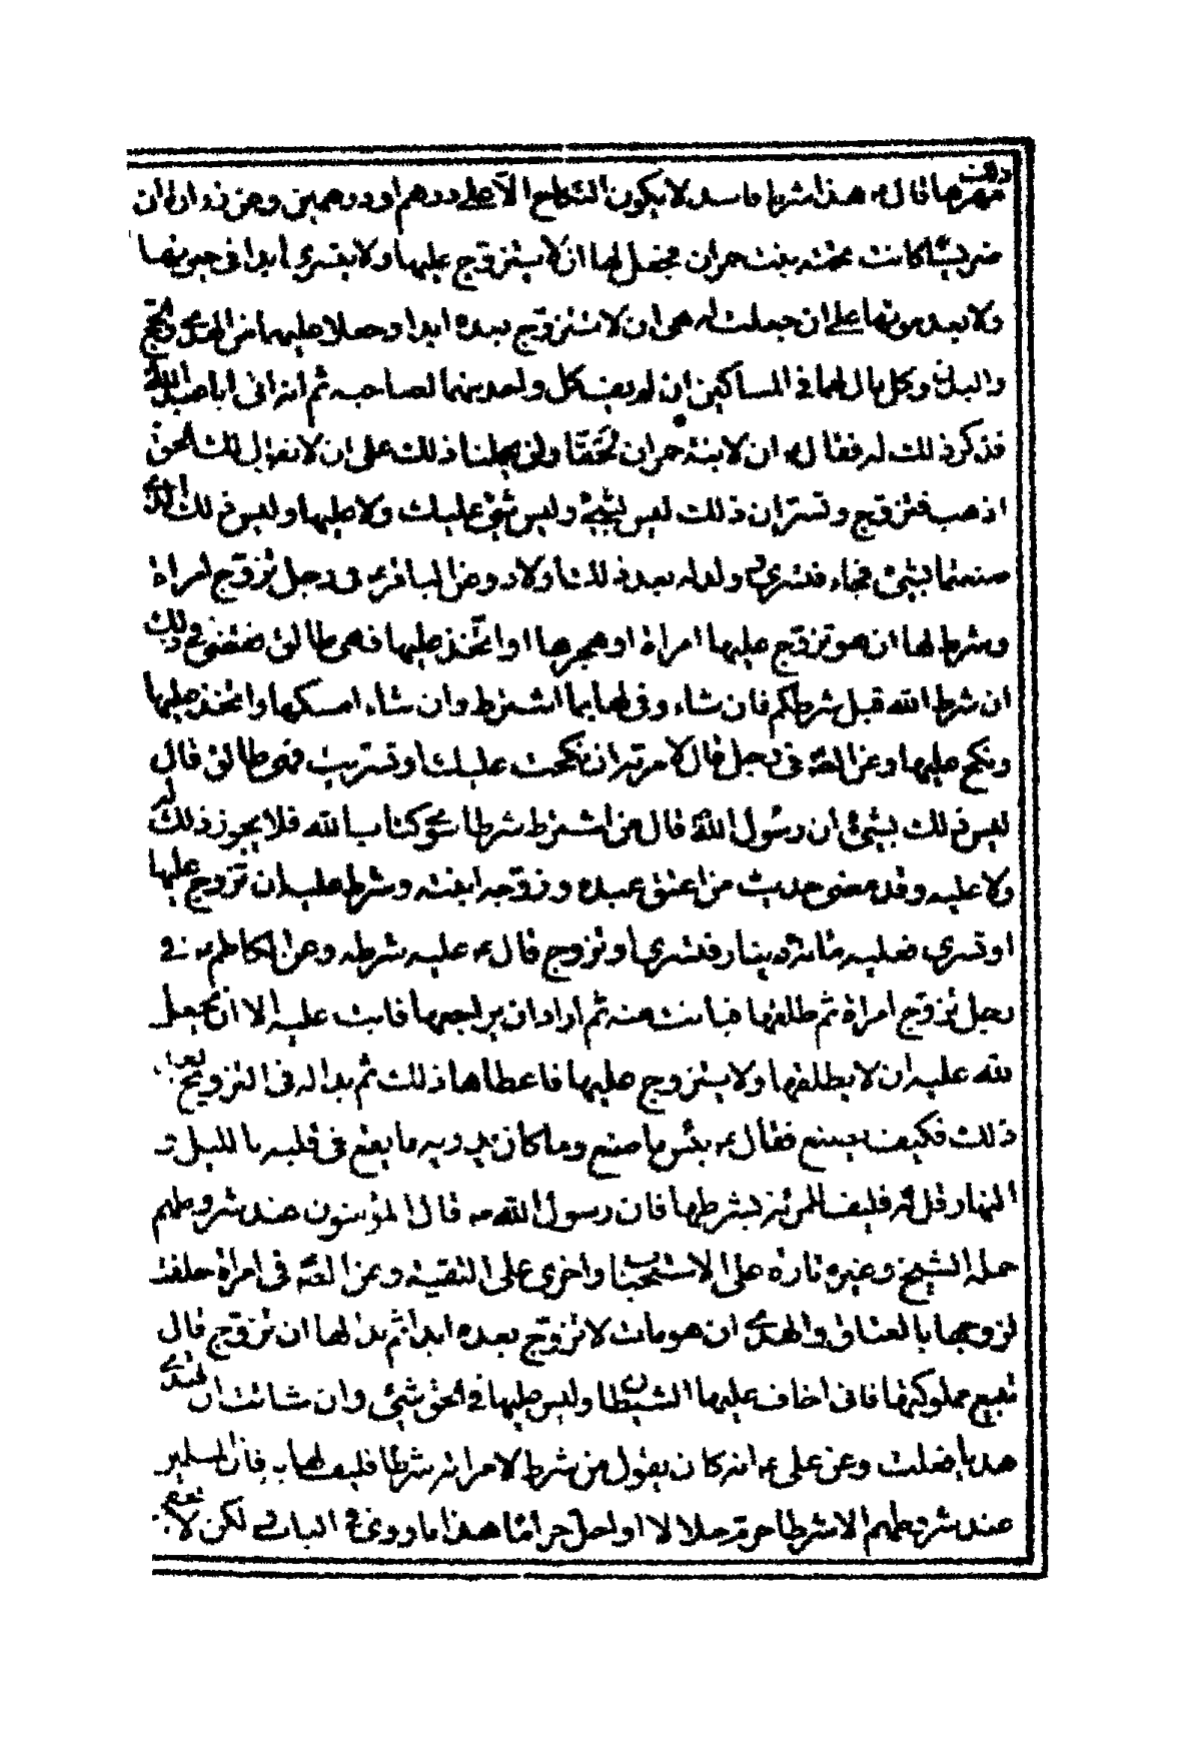 مهرها قال ع هذا شرط فاسد لا يكون النكاح الا على درهم او درهمين وعن زرارة ان
ضريسا كانت تحته بنت حمران فجعل لها ان لا يتزوج عليها ولا يتسرى ابدا في حيوتها
ولا بعد موتها على ان جعلت له هي ان لا تتزوج بعده ابدا وجعلا عليهما من الهدى والحج
والبدن وكل مال لهما في المساكين ان لم يف كل واحد منهما لصاحبه ثم انه اتى ابا عبد الله
فذكر ذلك له فقال ع ان لابنة حمران لحقا ولن يحملنا ذلك على ان لا نقول لك الحق
اذهب فتزوج وتسر ان ذلك ليس بشئ وليس شئ عليك ولا عليها وليس ذلك الذي
صنعتما بشئ فجاء فتسرى وولد له بعد ذلك اولاد وعن الباقر ع في رجل تزوج امراة
وشرط لها ان هو تزوج عليها امراة او هجرها او اتخذ عليها فهي طالق فقضى في ذلك
ان شرط الله قبل شرطكم فان شاء وفى لها بما اشترط وان شاء امسكها واتخذ عليها
ونكح عليها وعن الصم في رجل قال لامرته ان نكحت عليك او تسريت فهي طالق قال
ليس ذلك بشئ ان رسول الله قال من اشترط شرطا سوى كتاب الله فلا يجوز ذلك له
ولا عليه وقد مضى حديث من اعتق عبده وزوجه ابنته وشرط عليه ان تزوج عليها
او تسرى فعليه مائة دينار فتسرى او تزوج قال ع عليه شرطه وعن الكاظم ع في
رجل تزوج امراة ثم طلقها فبانت منه ثم اراد ان يراجعها فابت عليه الا ان يجعل
لله عليه ان لا يطلقها ولا يتزوج عليها فاعطاها ذلك ثم بدا له في التزويج بعد
ذلك فكيف يصنع فقال ع بئس ما صنع وما كان يدريه ما يقع في قلبه بالليل و
النهار قل له فليف للمرئة بشرطها فان رسول الله ص قال المؤمنون عند شروطهم
حمله الشيخ وغيره تارة على الاستحباب واخرى على التقية وعن الصم في امراة حلفت
لزوجها بالعتاق والهدى ان هو مات لا تزوج بعده ابدا ثم بدا لها ان تزوج قال
تبيع مملوكتها فاني اخاف عليها الشيطان وليس عليها في الحق شئ وان شائت ان تهدى
هديا فعلت وعن علي ع انه كان يقول من شرط لامراته شرطا فليف لها به فان المسلمين
عند شروطهم الا شرطا حرم حلالا او احل حراما هذا ما روى في الباب لكن لا